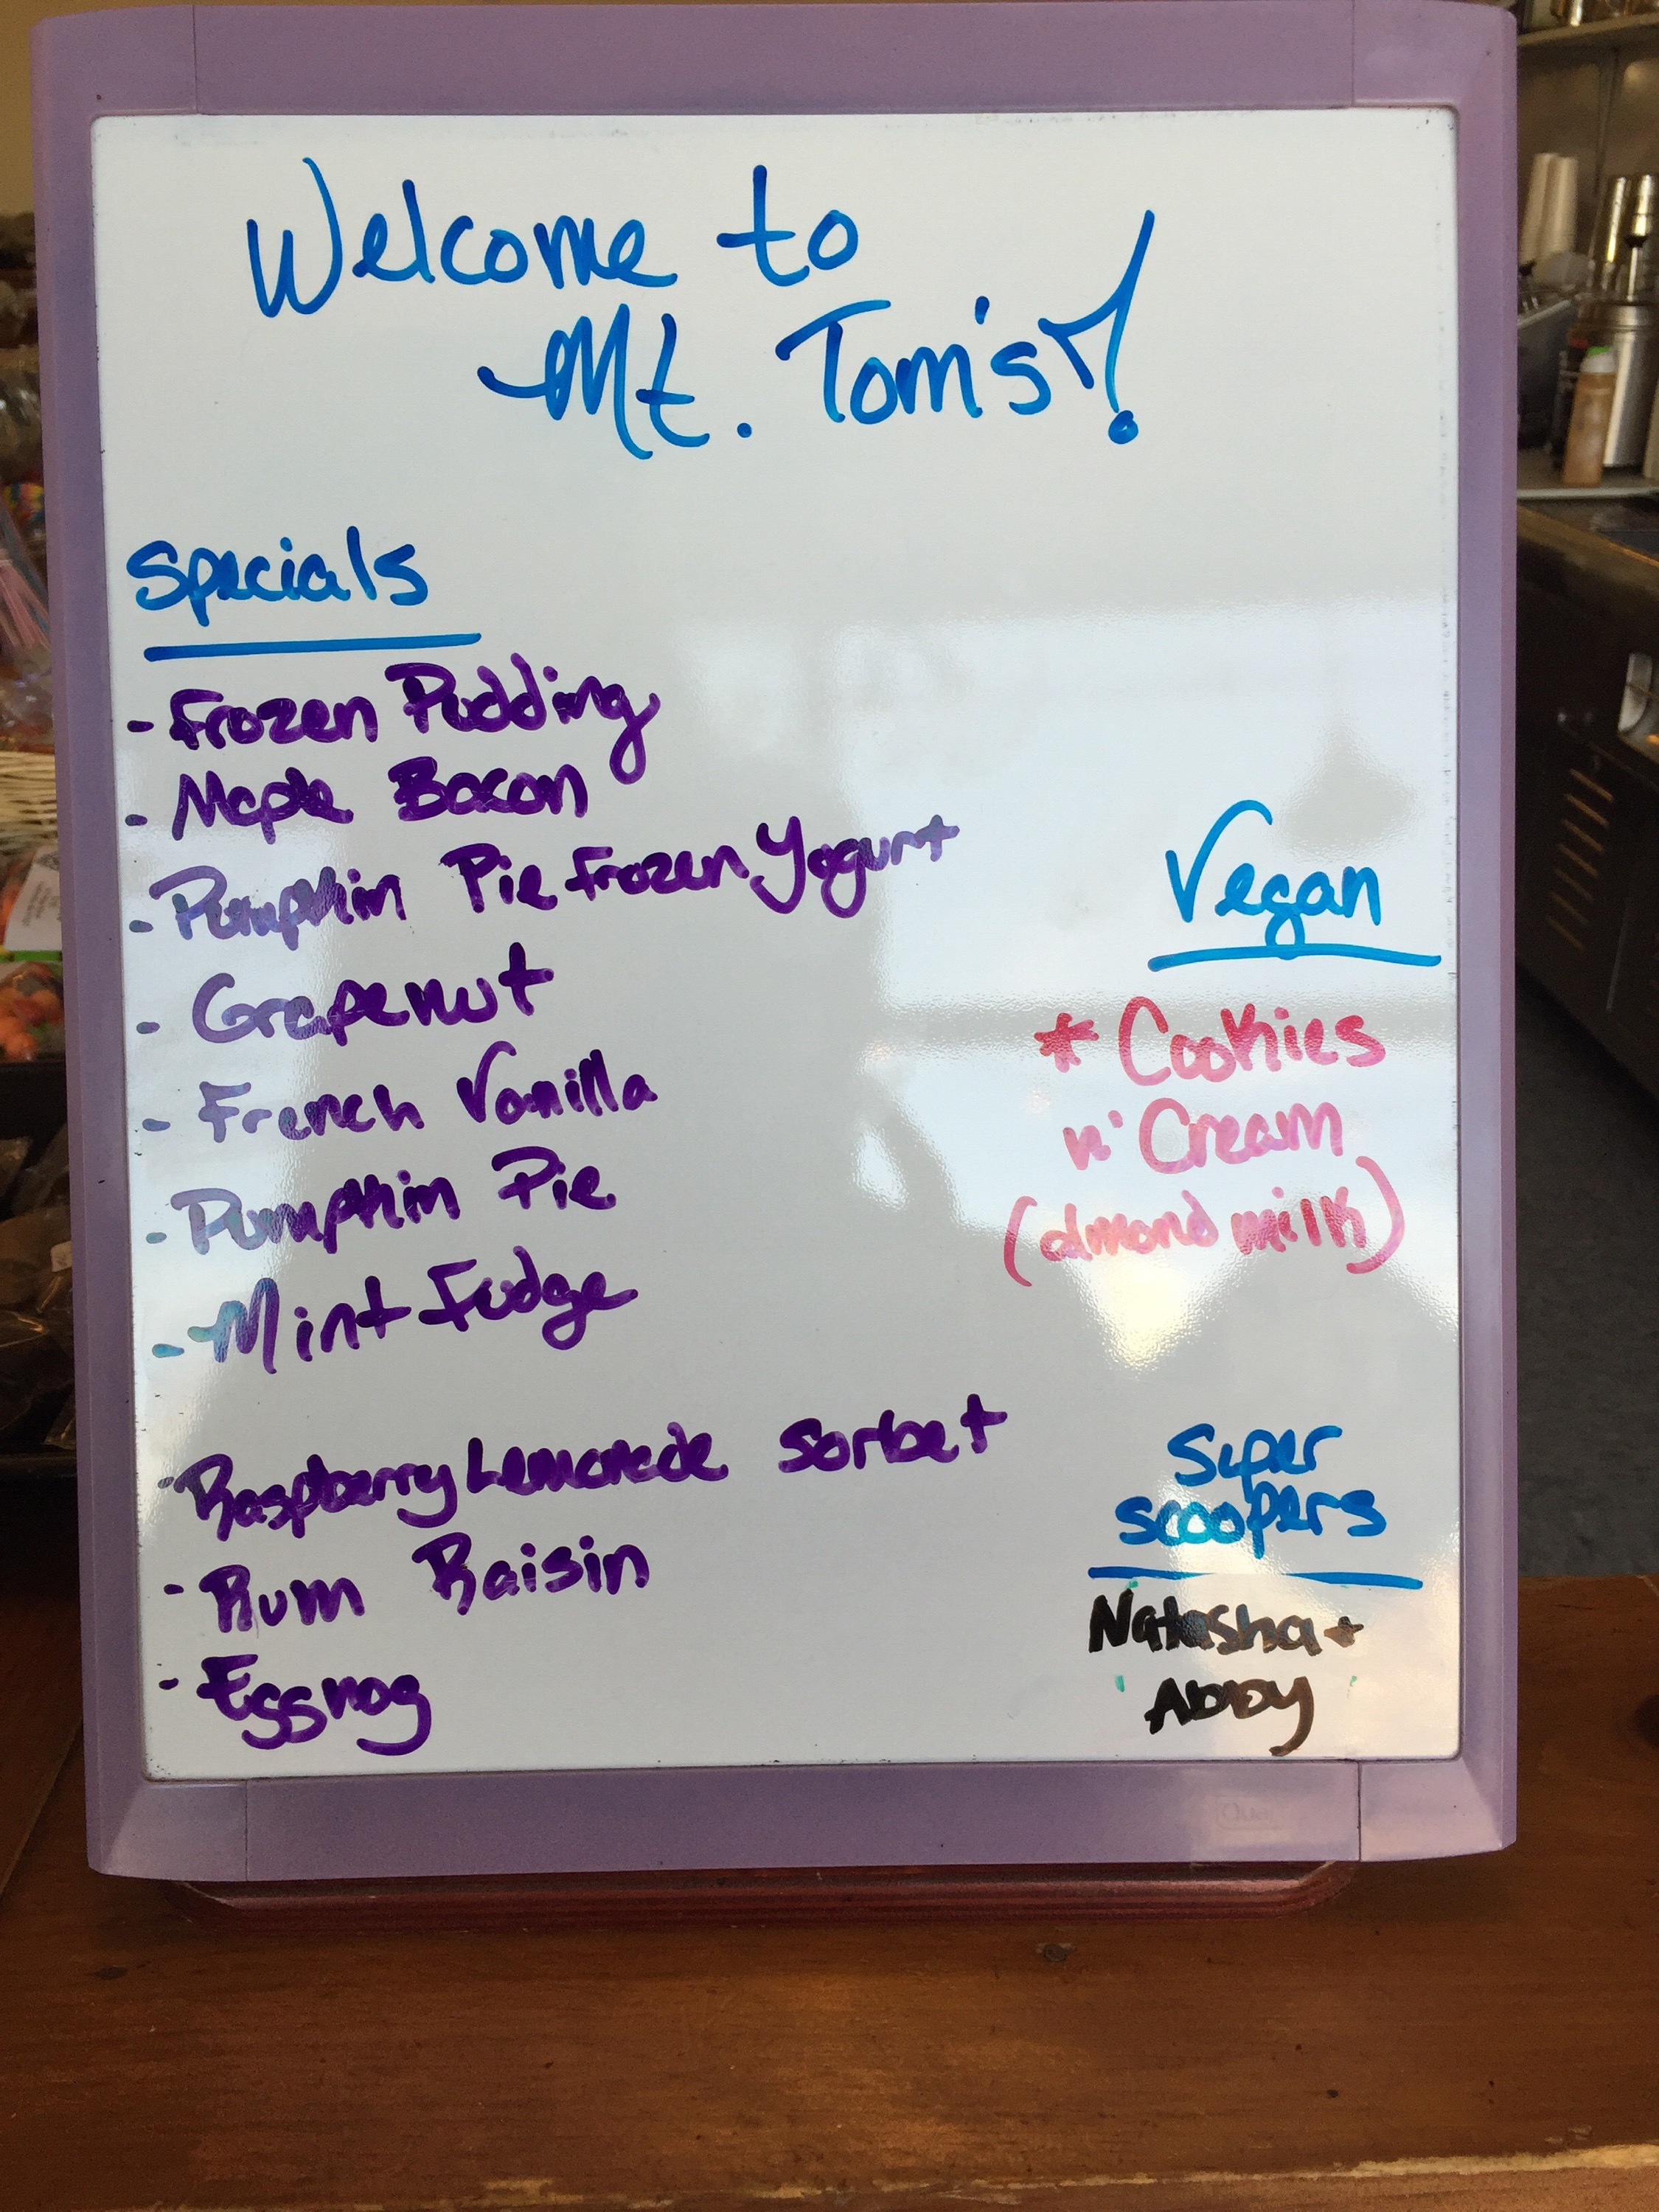 Welcome to
Mt. Tom's!
Specials
- Frozen Pudding
- Maple Bacon
- Pumpkin Pie Frozen Yogurt
- Grapenut
- French Vanilla
- Pumpkin Pie
- Mint Fudge
- Raspberry Lemonade Sorbet
- Rum Raisin
- Eggnog
Vegan
* Cookies
n' Cream
(almond milk)
Super
scoopers
Natasha +
Abby